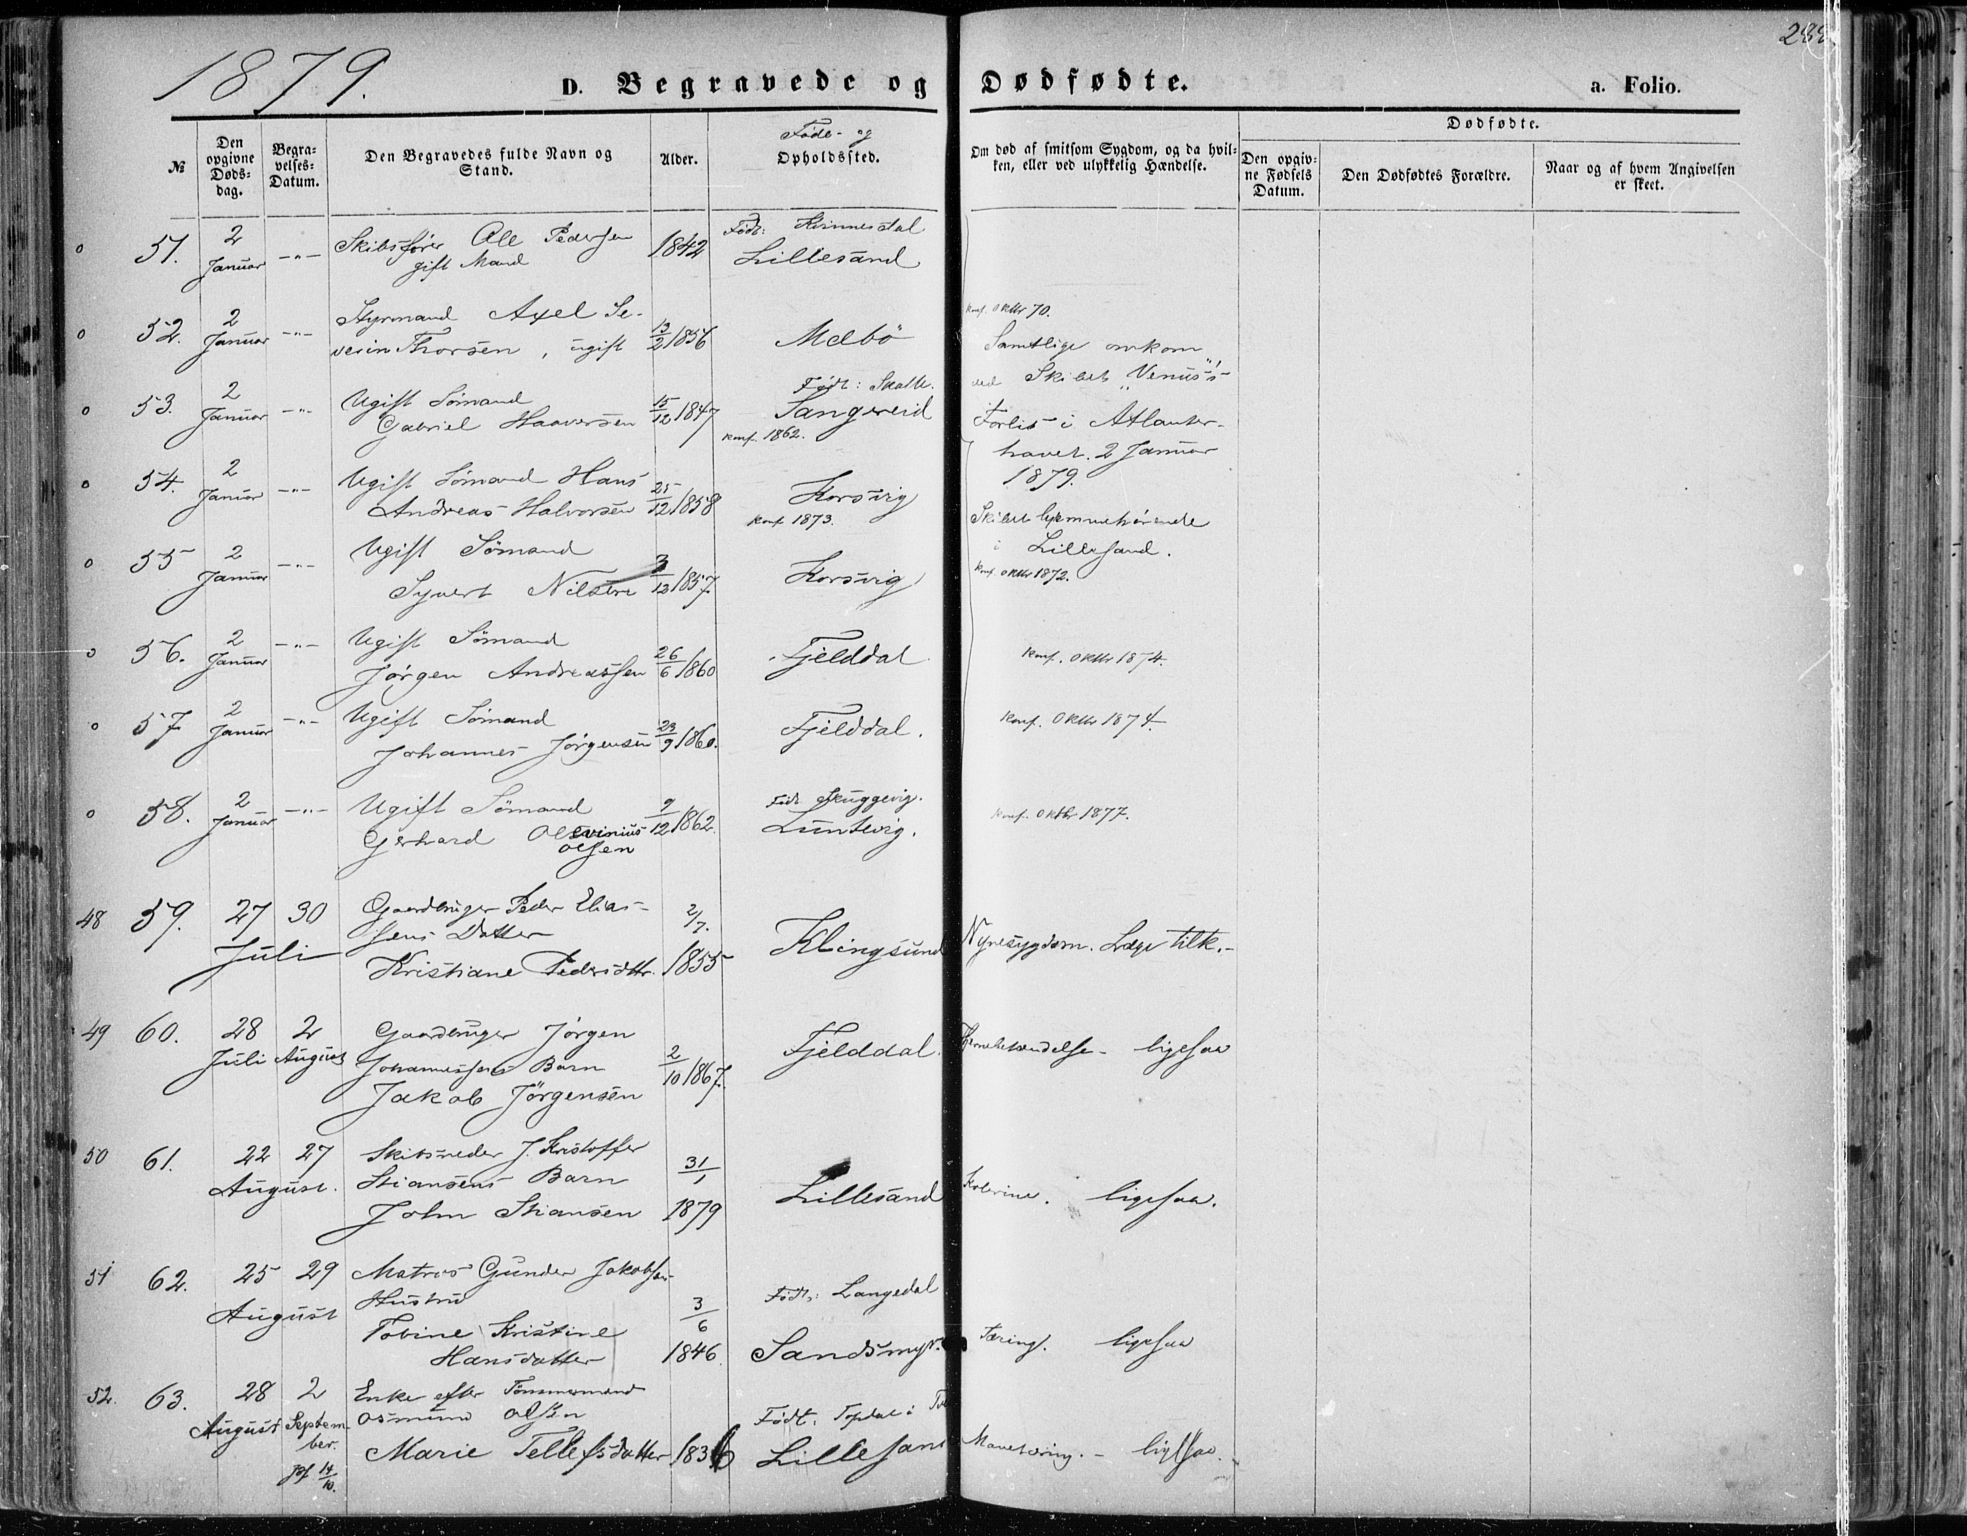 1879.
D. Begravede og Dødfødte.
a. Folio.
№
Den opgivne Døds-dag.
Begra-velses-Datum.
Den Begravedes fulde Navn og Stand.
Alder.
Føde- og
Opholdssted.
Om død af smitsom Sygdom, og da hvil-
ken, eller ved ulykkelig Hændelse.
Dødfødte.
Den opgiv-
ne Fødsels
Datum.
Den Dødfødtes Forældre.
Naar og af hvem Angivelsen
er skeet.
o 51. 2 Januar -"- Skibsfører Ole Pedersen 1842 Født:
gift Mand Lillesand
o 52. 2 Januar -"- Styrmand Axel Se-
verin Thorsen, ugift 13/2 1856 Melbö
Konf. Oktbr 70.
Samtlige omkom
ved Skibet "Venus's"
Forlis i Atlanter-
havet. 2 Januar
1879.
Skibet hjemmehørende
i Lillesand.
o 53. 2 Januar -"- Ugift Sömand
Gabriel Haaversen 15/12 1847 Født: Skalle.
Sangereid
Konf. 1862.
o 54. 2 Januar -"- Ugift Sömand Hans
Andreas Halvorsen 25/12 1858 Korsvig
Konf 1873.
o 55 2 Januar -"- Ugift Sömand
Syvert Nilsen 3/12 1857. Korsvig
Konf. Oktbr 1872.
o 56. 2 Januar -"- Ugift Sömand
Jørgen Andreassen 26/6 1860 Fjelddal
Konf. Oktbr 1874.
o 57. 2 Januar -"- Ugift Sömand
Johannes Jørgensen 23/9 1860. Fjelddal.
Konf. Oktbr 1874.
o 58. 2 Januar -"- Ugift Sömand
Gerhard Olevinius
olsen 9/12 1862. Født Skuggevig.
Luntevig.
Konf. Oktbr 1877.
48 59. 27 30 Juli Gaardbruger Peder Elias-
sens Datter
Kristiane Pedersdttr. 2/7. 1855 Klingsund
Nyresygdom. Læge tilk.-
49 60. 28 Juli 2 August Gaardbruger Jörgen
Johannessens Barn
Jakob Jörgensen 2/10 1867. Fjelddal.
Hjernebetændelse - ligesaa
50 61. 22 27 August. Skibsreder J. Kristoffer
Stiansens Barn
John Stiansen 31/1 1879 Lillesand
Kolerine. ligesaa.
51 62. 25 29 August Matros Gunder Jakobsens
Hustru
Tobine Kristine
Hansdatter 3/6 1846. Født: Langedal
Sandsmyr.
Tæring. ligesaa
52. 63. 28 August 2 Septem-
ber.
Jdf 14/10. Enke efter Tømmermand
Osmund Olsen
Marie Tellefsdatter 1836 Født: Topdal i
Lillesand
Mavetæring. - ligesaa.